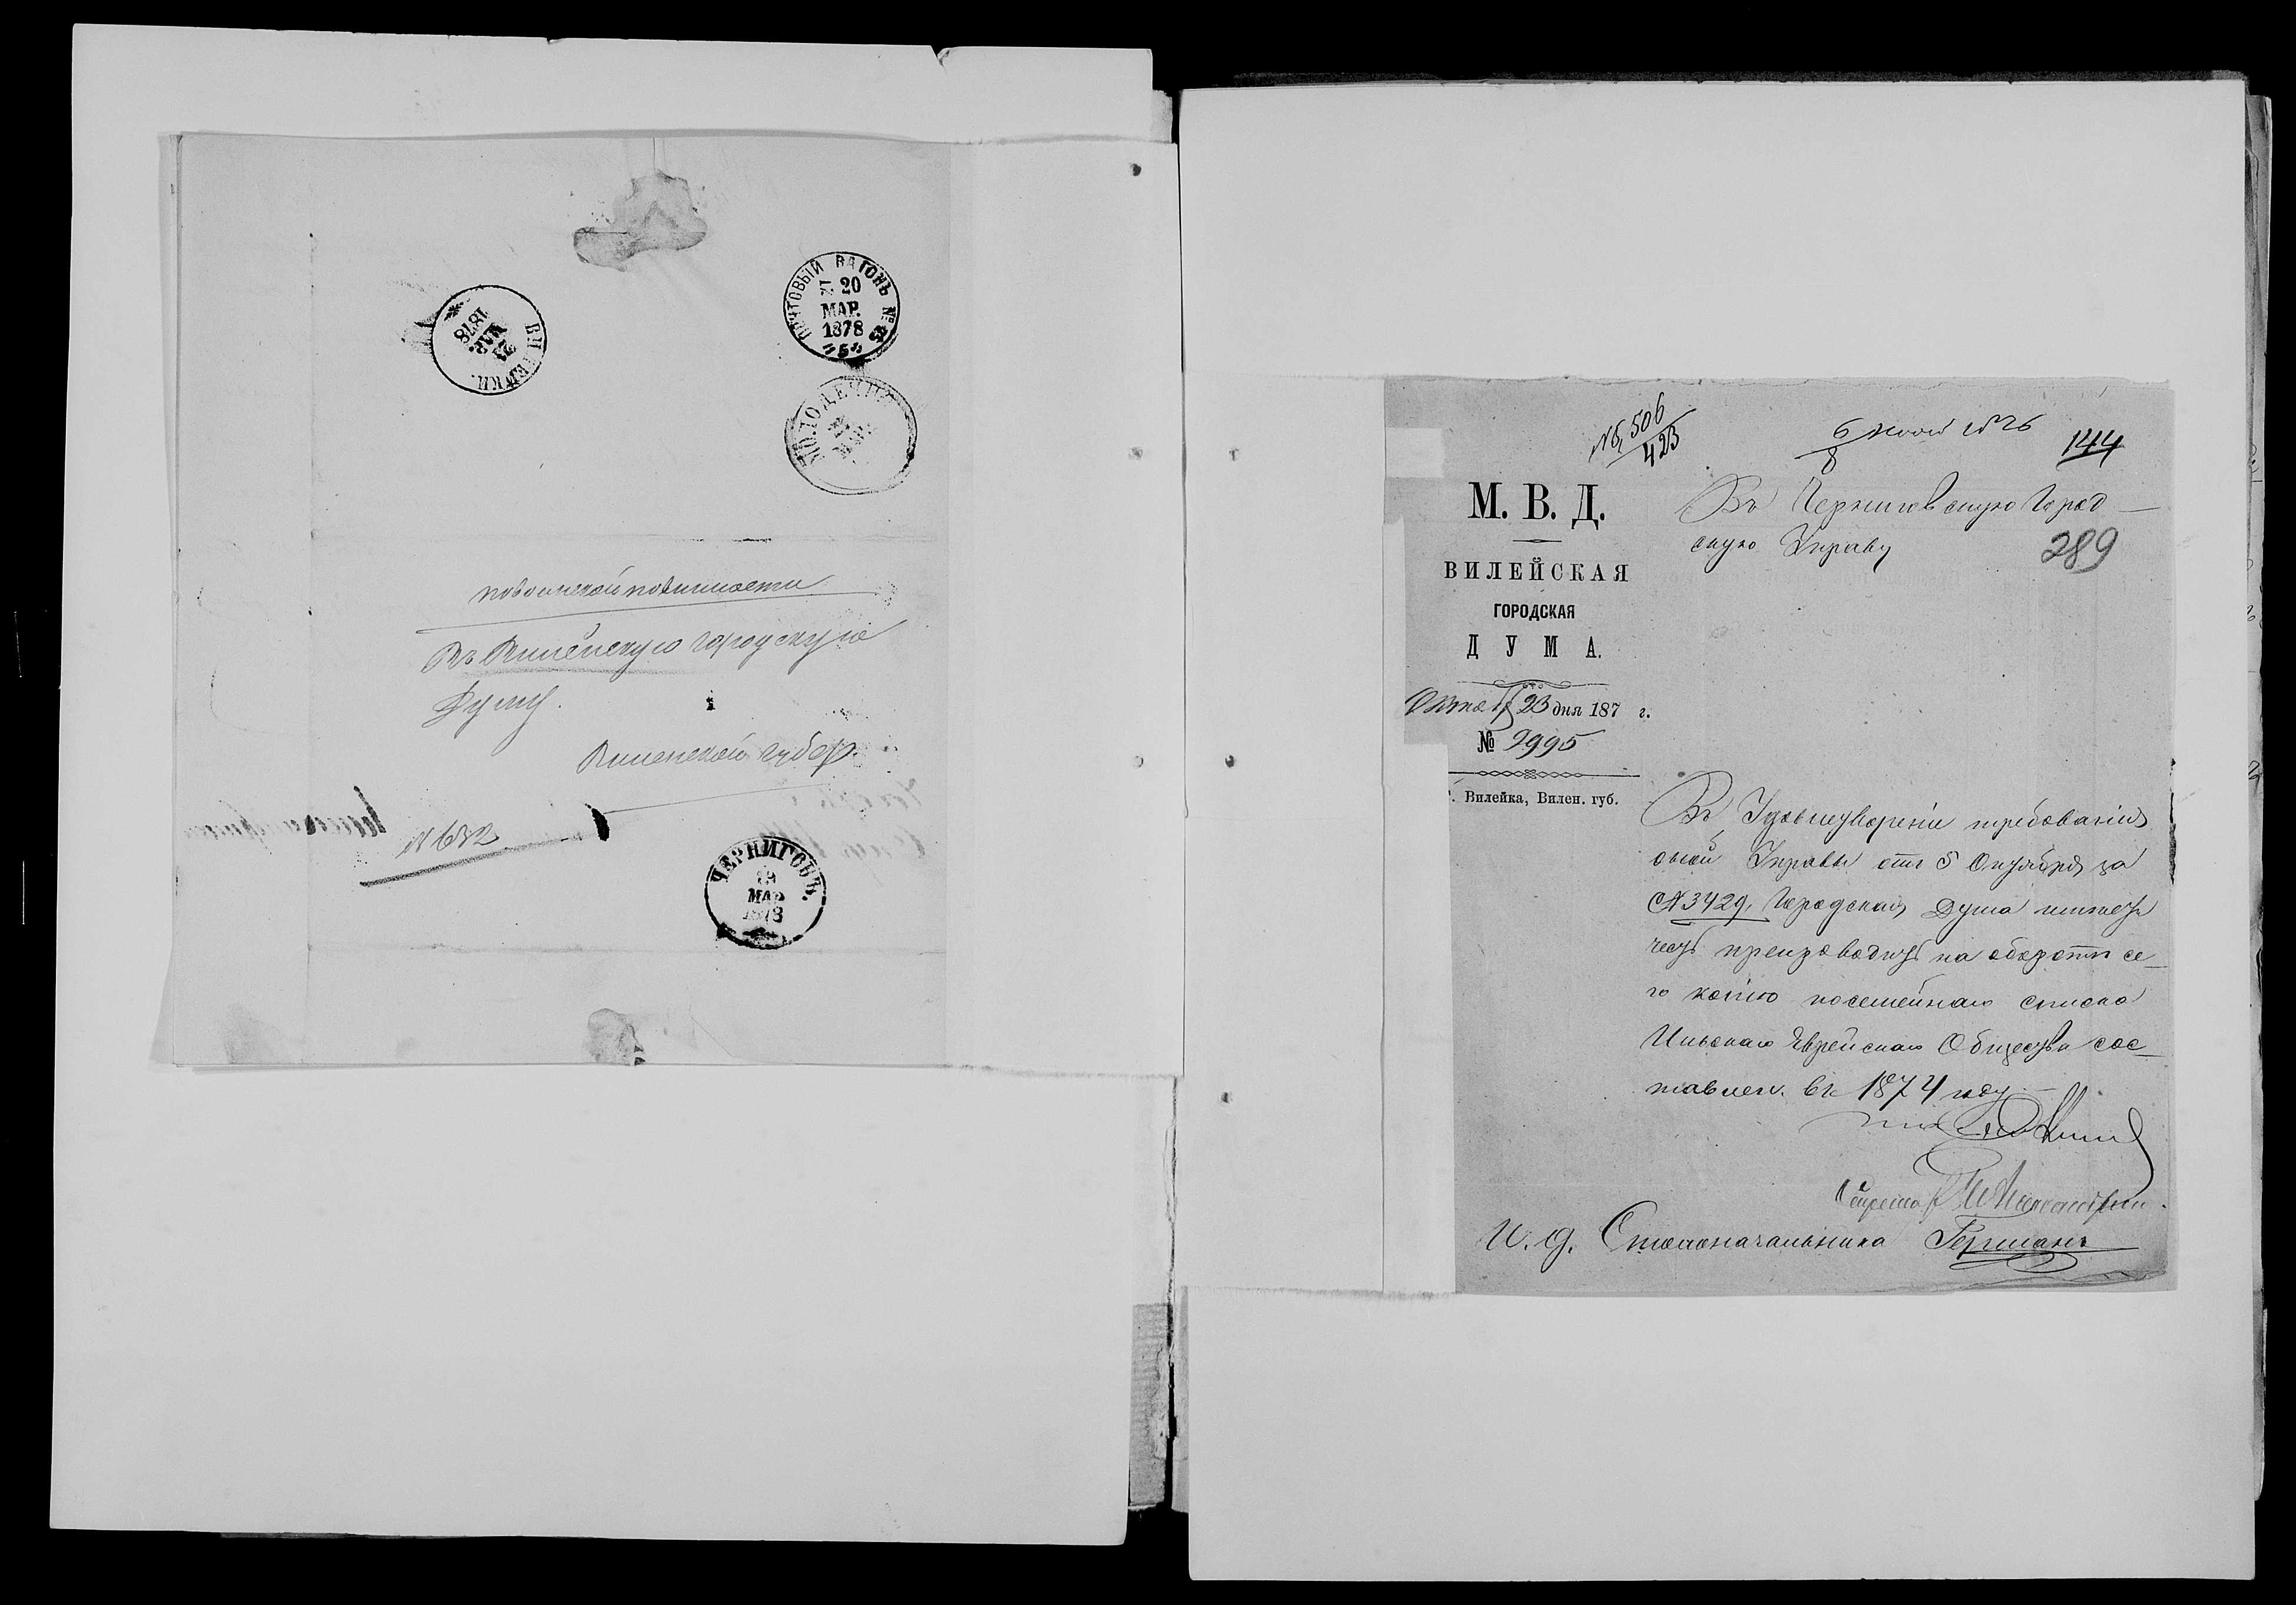 ПОЧТОВЫЙ ВАГОНЪ №
20
МАР.
1878
21
МАР.
1878
МОЛОДЕЧН
по воинской повинности
Въ Вилейскую городскую
Думу.
Виленской губер.
№ 632
ЧЕРНИГОВЪ.
19
МАР
1878
№ 506
423
6
8
144
М. В. Д.
ВИЛЕЙСКАЯ
ГОРОДСКАЯ
ДУМА.
23 дня 187 г.
№ 2995
г. Вилейка, Вилен. губ.
Въ Черниговскую Город
скую Управу
289
Въ Удовлетвореніе требованія
оной Управы отъ 5 Октября за
№ 3429, Городская Дума имѣетъ
честь препроводить на оборотѣ се-
го копію посемейнаго списка
Ильскаго Еврейскаго Общества сос-
тавлен. въ 1874 году
Секретарь
И. д. Столоначальника Германъ